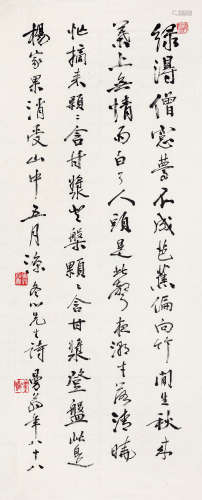 绿得僧窗梦不成芭蕉偏向竹间生秋来
叶上无情雨白了人头是此声夜潮才落清晓
忙摘来颗颗含甘浆登盘颗颗含甘浆登盘此是
杨家果消受山中五月凉 冬心先生诗 曼翁年八十八